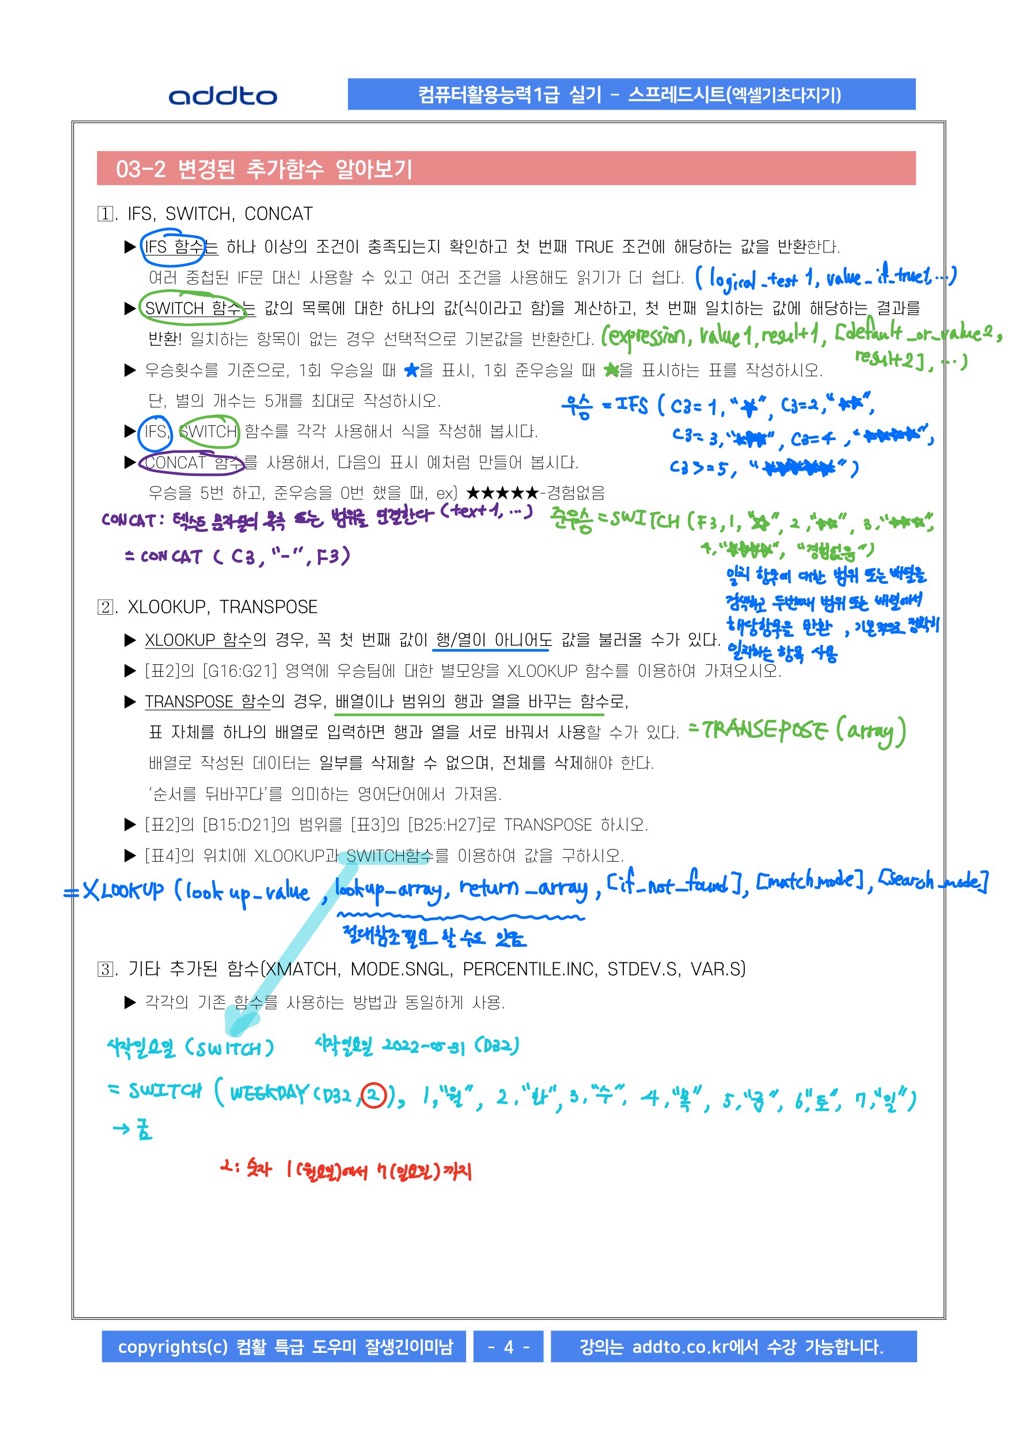 addto
컴퓨터활용능력1급 실기 - 스프레드시트(엑셀기초다지기)
03-2 변경된 추가함수 알아보기
1. IFS, SWITCH, CONCAT
▶ IFS 함수는 하나 이상의 조건이 충족되는지 확인하고 첫 번째 TRUE 조건에 해당하는 값을 반환한다.
여러 중첩된 IF문 대신 사용할 수 있고 여러 조건을 사용해도 읽기가 더 쉽다. (logical_test 1, value_if_true1, …)
▶ SWITCH 함수는 값의 목록에 대한 하나의 값(식이라고 함)을 계산하고, 첫 번째 일치하는 값에 해당하는 결과를
반환! 일치하는 항목이 없는 경우 선택적으로 기본값을 반환한다. (expression, value1, result1, [default_or_value2,
result2], …)
▶ 우승횟수를 기준으로, 1회 우승일 때 ★을 표시, 1회 준우승일 때 ★을 표시하는 표를 작성하시오.
단, 별의 개수는 5개를 최대로 작성하시오.
우승 = IFS ( C3=1, "★", C3=2, "★★",
▶ IFS, SWITCH 함수를 각각 사용해서 식을 작성해 봅시다.
C3=3, "★★★", C3=4, "★★★★",
▶ CONCAT 함수를 사용해서, 다음의 표시 예처럼 만들어 봅시다.
C3>=5, "★★★★★")
우승을 5번 하고, 준우승을 0번 했을 때, ex) ★★★★★-경험없음
CONCAT: 텍스트 문자열의 목록 또는 범위를 연결한다 (text1, …)
준우승 = SWITCH (F3, 1, "★", 2, "★★", 3, "★★★",
4, "★★★★", "경험없음")
= CONCAT ( C3, "-", F3)
일치 항목에 대한 범위 또는 배열을
검색하고 두번째 범위 또는 배열에서
해당항목을 반환, 기본적으로 정확히
일치하는 항목 사용
2. XLOOKUP, TRANSPOSE
▶ XLOOKUP 함수의 경우, 꼭 첫 번째 값이 행/열이 아니어도 값을 불러올 수가 있다.
▶ [표2]의 [G16:G21] 영역에 우승팀에 대한 별모양을 XLOOKUP 함수를 이용하여 가져오시오.
▶ TRANSPOSE 함수의 경우, 배열이나 범위의 행과 열을 바꾸는 함수로,
표 자체를 하나의 배열로 입력하면 행과 열을 서로 바꿔서 사용할 수가 있다. =TRANSEPOSE (array)
배열로 작성된 데이터는 일부를 삭제할 수 없으며, 전체를 삭제해야 한다.
'순서를 뒤바꾸다'를 의미하는 영어단어에서 가져옴.
▶ [표2]의 [B15:D21]의 범위를 [표3]의 [B25:H27]로 TRANSPOSE 하시오.
▶ [표4]의 위치에 XLOOKUP과 SWITCH함수를 이용하여 값을 구하시오.
= XLOOKUP (lookup_value, lookup_array, return_array, [if_not_found], [match_mode], [search_mode]
절대참조 필요 할 수도 있음
3. 기타 추가된 함수(XMATCH, MODE.SNGL, PERCENTILE.INC, STDEV.S, VAR.S)
▶ 각각의 기존 함수를 사용하는 방법과 동일하게 사용.
시작일요일 (SWITCH) 시작일요일 2022-05-31 (D32)
= SWITCH ( WEEKDAY(D32, 2), 1,"월", 2,"화", 3,"수", 4,"목", 5,"금", 6,"토", 7,"일")
→ 금
2: 숫자 1(월요일)에서 7(일요일)까지
copyrights(c) 컴활 특급 도우미 잘생긴이미남
- 4 -
강의는 addto.co.kr에서 수강 가능합니다.